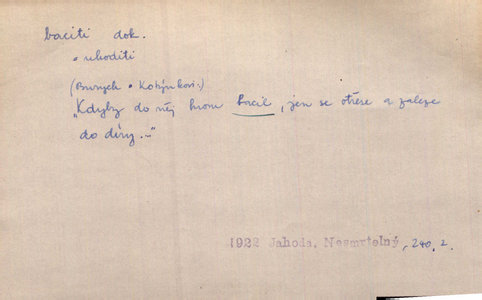 baciti dok.
• uhoditi
(Bunych • Kobýnkovi:)
"Kdyby do něj hrom bacil, jen se otřese a zaleze
do díry..."
1922 Jahoda, Nesmrtelný, 240, 2.